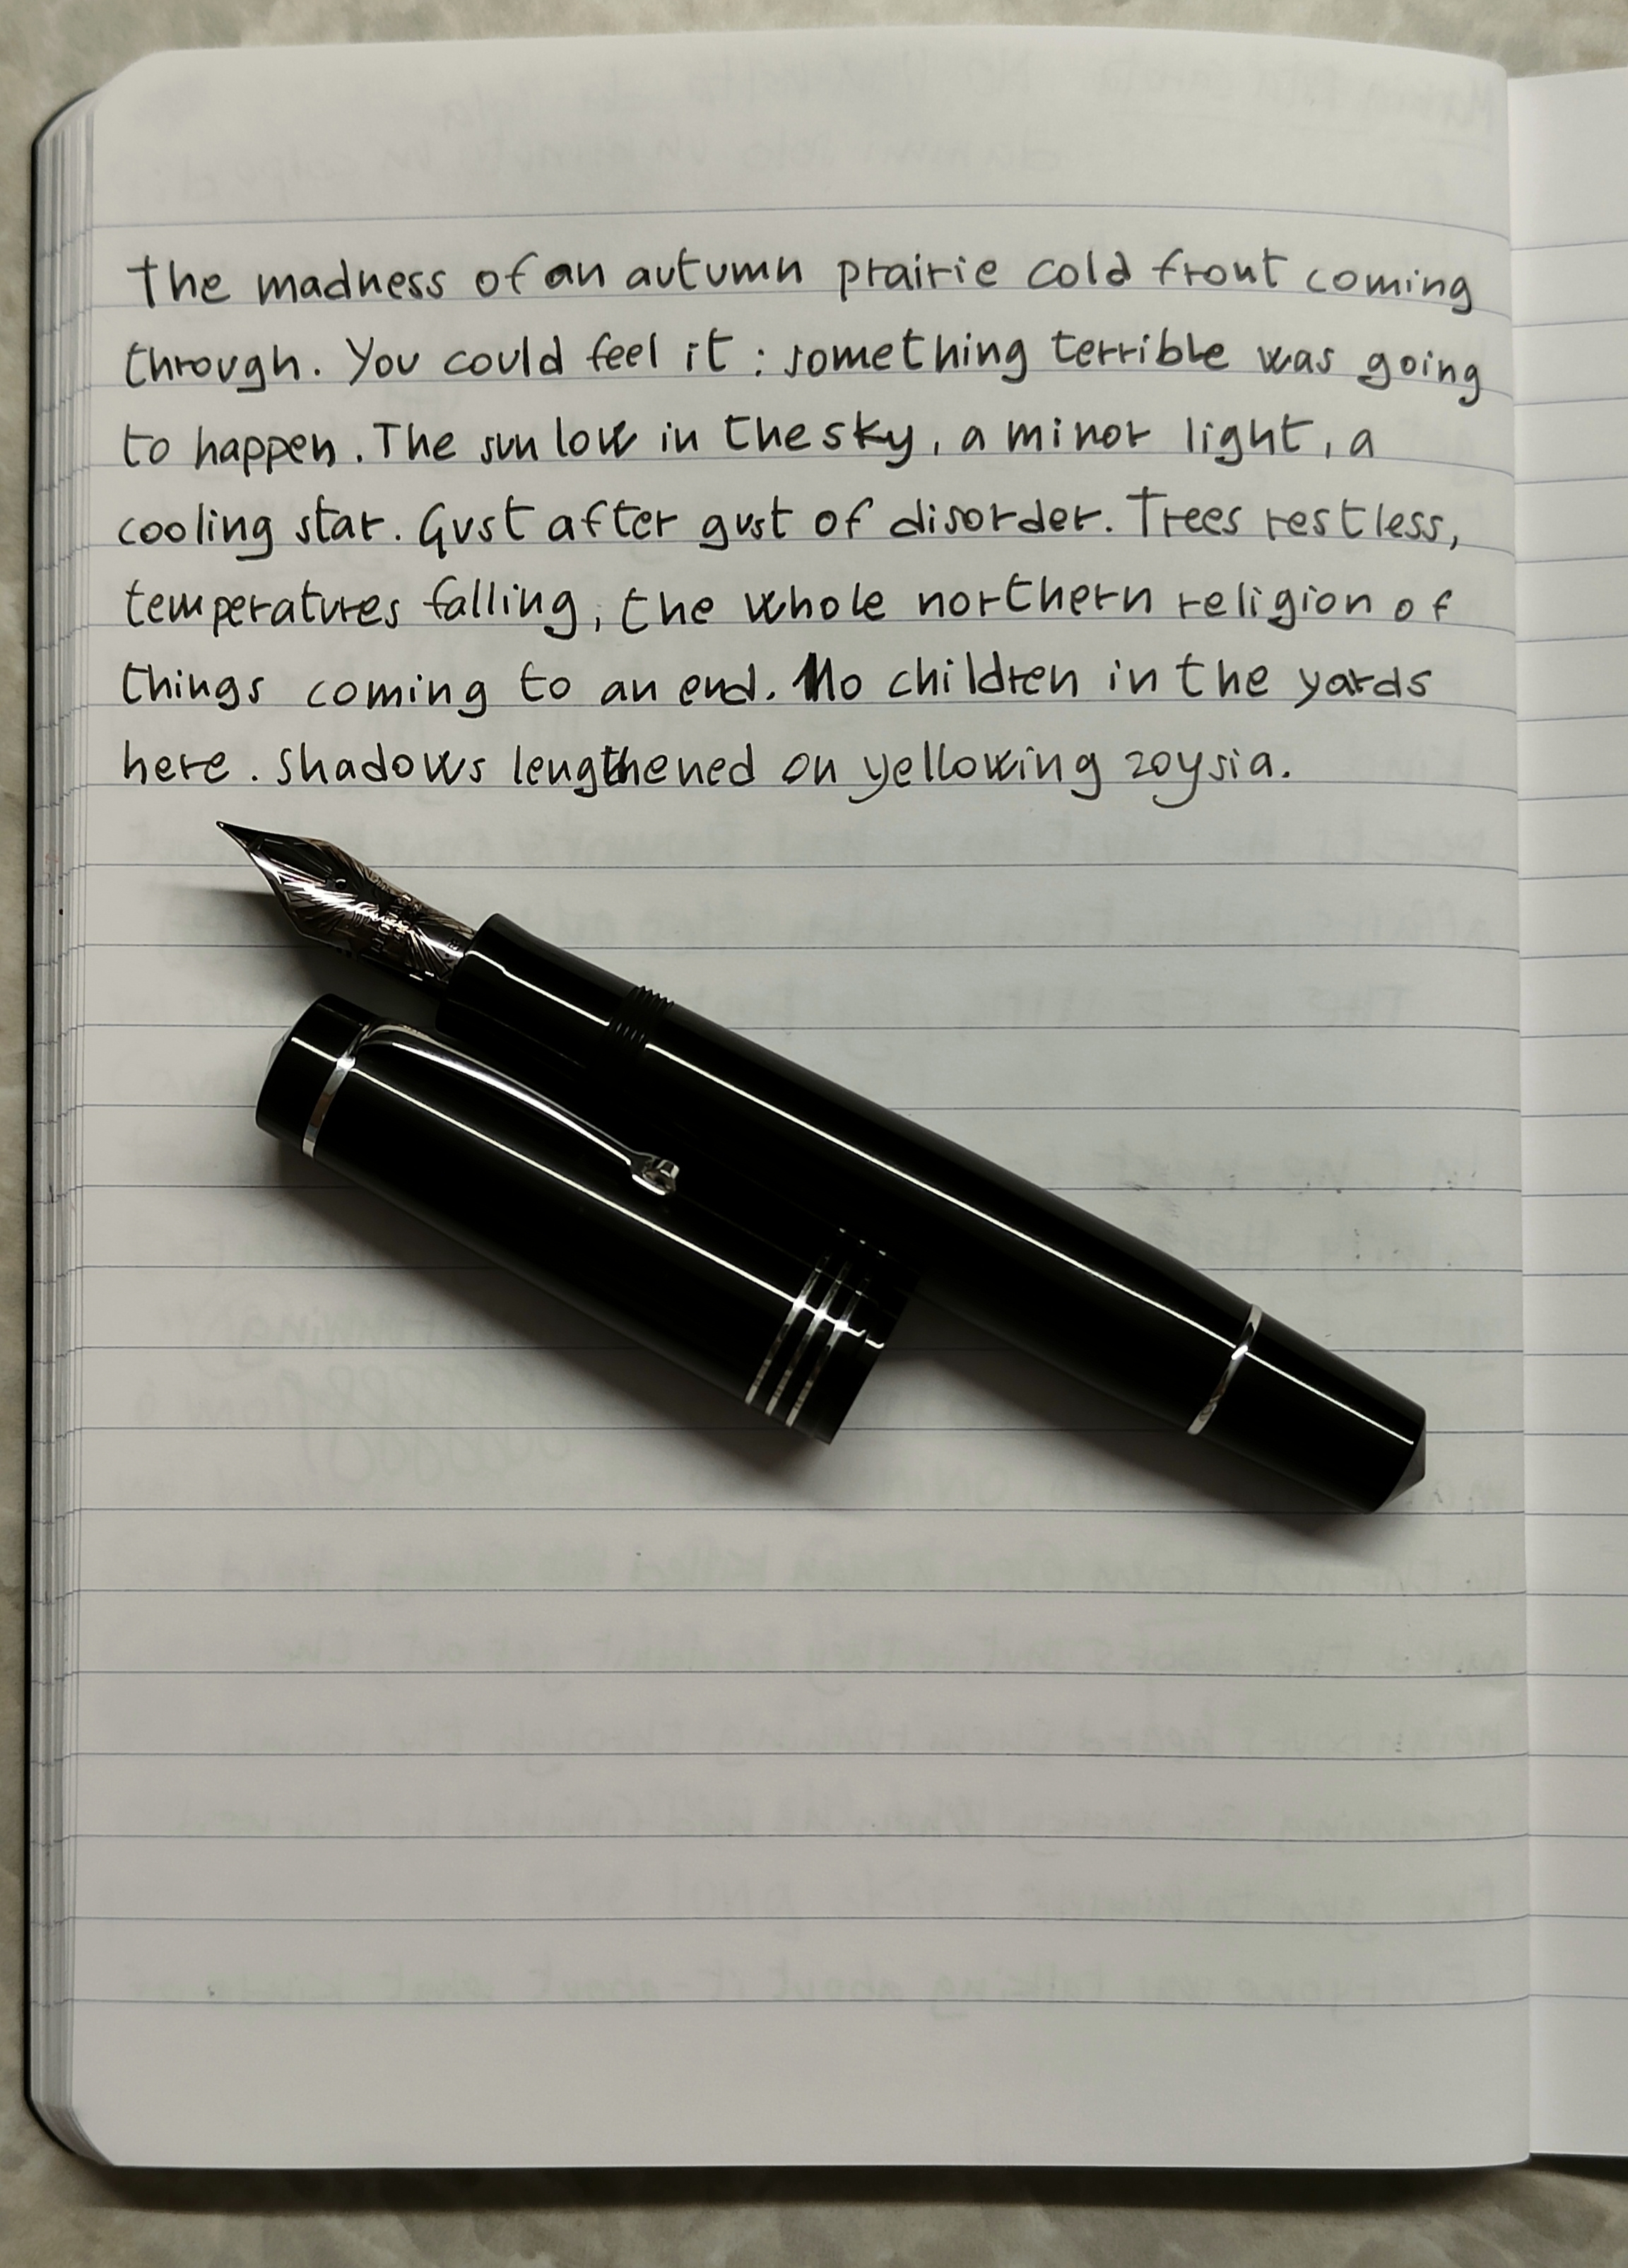 The madness of an autumn prairie cold front coming
through. You could feel it: something terrible was going
to happen. The sun low in the sky, a minor light, a
cooling star. Gust after gust of disorder. Trees restless,
temperatures falling, the whole northern religion of
things coming to an end. No children in the yards
here. Shadows lengthened on yellowing zoysia.